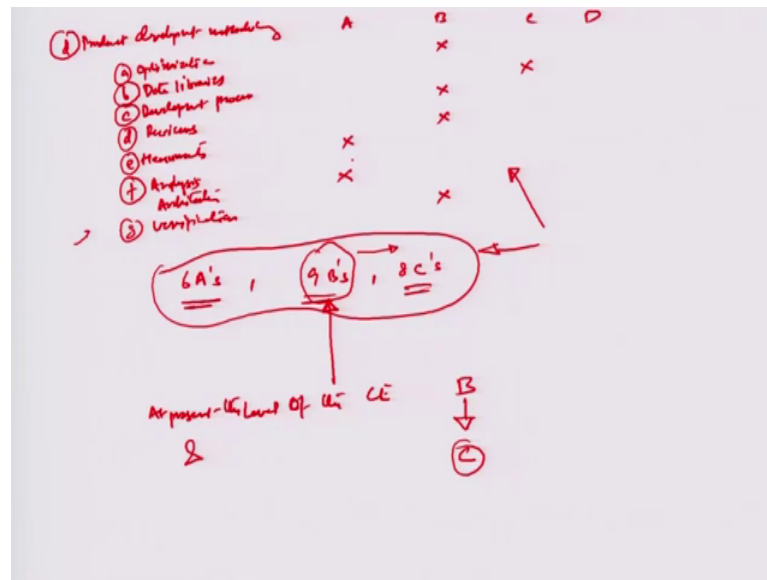 Product development methodology A B C D
ⓐ Optimization ×
ⓑ Data libraries ×
ⓒ Development process ×
ⓓ Reviews ×
ⓔ ×
ⓕ Analysis ×
Architecture
ⓖ Verification ×
6A's , 9 B's , 8 C's
At present - the level of the CE B
& C